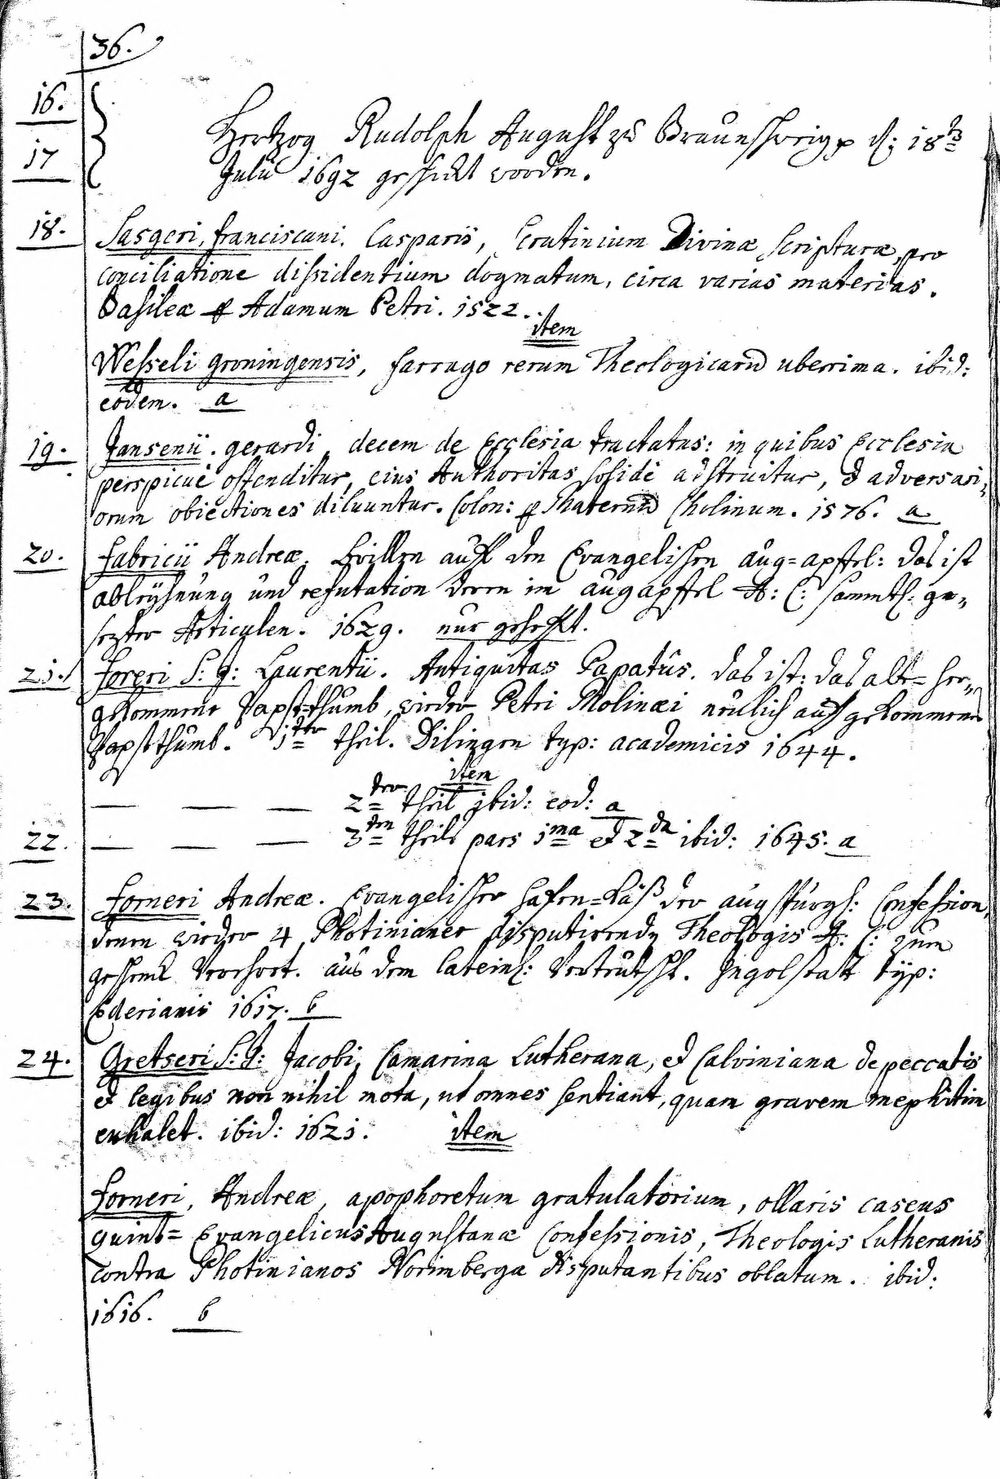 36.
16.
17
Hertzog Rudolph August zu Braunschweig p d: 18ts
Julii 1692 geschickt worden.
18. Sasgeri, franciscani. Casparis, Scrutinium Divinæ Scripturæ pro
conciliatione dissidentium dogmatum, circa varias materias.
Basileæ p Adamum Petri. 1522.
item
Wesseli groningensis, farrago rerum Theologicarū uberrima. ibid:
eodem. a
19. Jansenii. gerardi, decem de Ecclesia tractatus: in quibus Ecclesia
perspicuè ostenditur, eius Authoritas solidè adstruitur, & adversari-
orum obiectiones diluuntur. Colon: p Maternū Cholinum. 1576. a
20. Fabricii Andreæ, Brillen auff den Evangelischen aug=apffel: das ist
ableihnung und refutation deren im augapffel A: C: sammtl: ge-
setzter Articulen. 1629. nur gehefft.
21. Foreri S: J: Laurentii. Antiquitas Papatûs. das ist: das alt=her-
gekommene Papstthumb, wieder Petri Molinæi neulich auffgekommene
Papstthumb. 1ter theil. Dilingen typ: academicis 1644.
item
— — — 2ter theil ibid: eod: a
22. — — — 3ten theils pars 1ma et 2da ibid: 1645. a
23. Forneri Andreæ. Evangelischer Hafen=Käß der augspurgs: Confession,
denen wieder 4 Photinianer disputirendn Theologis A: C: zum
geschenk verehret. aus dem lateins: verteutscht. Ingolstatt typ:
Ederianis 1617. b
24. Gretseri S: J: Jacobi, Camarina Lutherana, et Calviniana de peccatis
et legibus non nihil mota, ut omnes sentiant, quam gravem mephitim
exhalet. ibid: 1621. item
Forneri, Andreæ, apophoretum gratulatorium, ollaris caseus
quint= Evangelicus Augustanæ Confessionis, Theologis Lutheranis
contra Photinianos Norimbergæ disputantibus oblatum. ibid:
1616. b